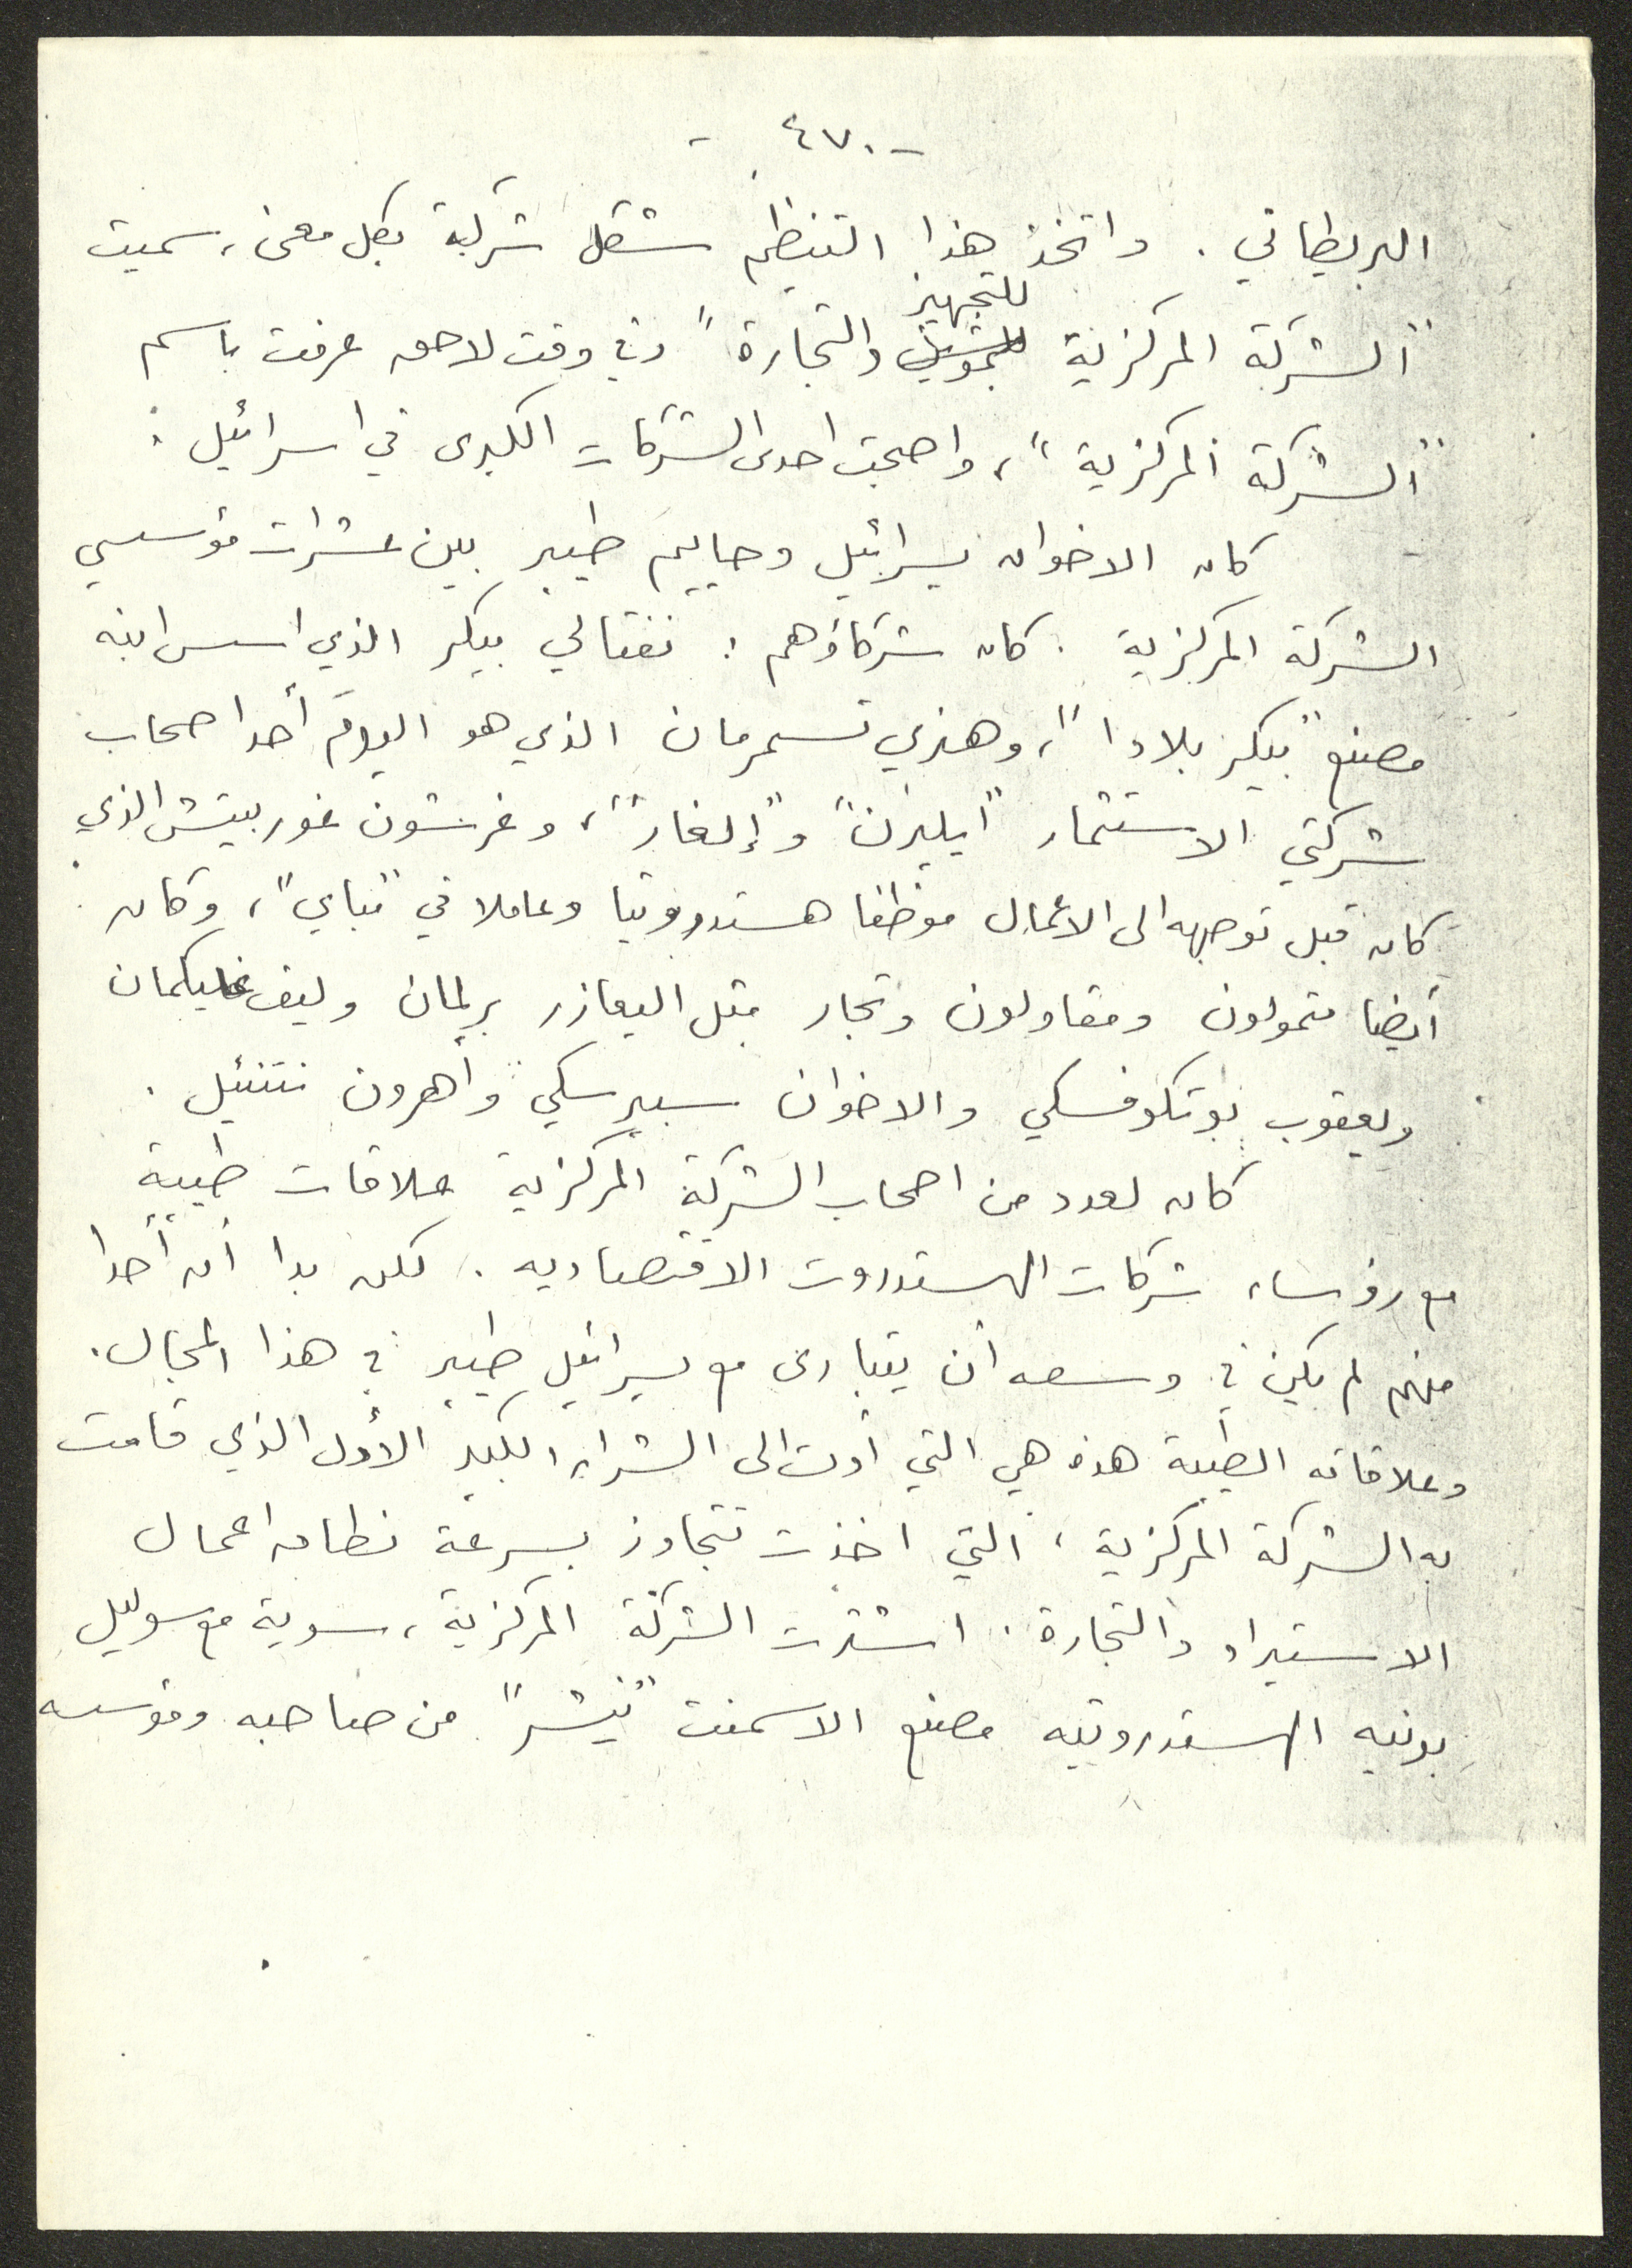 - ٤٧٠ -
البريطاني . واتخذ هذا التنظيم شكل شركة بكل معنى، سميت
للتجهيز
"الشركة المركزية للتمويل والتجارة" وفي وقت لاحق عرفت باسم
"الشركة المركزية"، واصبحت احدى الشركات الكبرى في اسرائيل .
كان الاخوان يسرائيل وحاييم طيبر بين عشرات مؤسسي
الشركة المركزية . كان شركاؤهم : نفتالي بيكر الذي اسس ابنه
مصنع "بيكر بلادا"، وهنري تسمرمان الذي هو اليوم أحد اصحاب
شركتي الاستثمار "ايليرن" و"إلغار"، وغرشون غوربيتش الذي
كان قبل توجهه الى الاعمال موظفا هستدروتيا وعاملا في "مباي"، وكان
أيضا متمولون ومقاولون وتجار مثل اليعازر برلمان وليف غليكمان
ويعقوب بوتكوفسكي والاخوان سبيرسكي وأهرون نتنئيل .
كان لعدد من اصحاب الشركة المركزية علاقات طيبة
مع رؤساء شركات الهستدروت الاقتصادية . لكن بدا أن أحدا
منهم لم يكن في وسعه أن يتبارى مع يسرائيل طيبر في هذا المجال .
وعلاقاته الطيبة هذه هي التي أدت الى الشراء الكبير الأول الذي قامت
به الشركة المركزية ، التي اخذت تتجاوز بسرعة نطاق اعمال
الاستيراد والتجارة . اشترت الشركة المركزية ، سوية مع سوليل
بونيه الهستدروتيه مصنع الاسمنت "نيشر" من صاحبه ومؤسسه